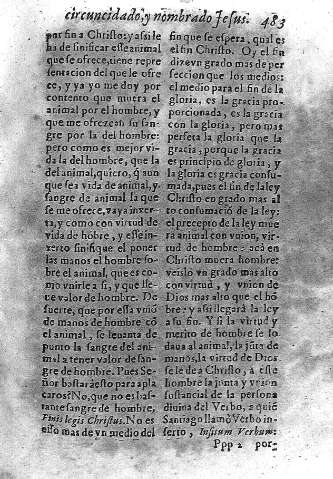 circuncidado, y nombrado Jesus. 483
por fin a Christo: y assi le
ha de sinificar esse animal
que se ofrece, tiene repre
sentacion del que le ofre
ce, y ya yo me doy por
contento que muera el
animal por el hombre, y
que me ofrezcan su san-
gre por la del hombre:
pero como es mejor vi-
da la del hombre, que la
del animal, quiero, q̃ aun
que sea vida de animal, y
sangre de animal la que
se me ofrece, vaya inxer-
ta, y como con virtud de
vida de hõbre, y esse in-
xerto sinifique el poner
las manos el hombre so-
bre el animal, que es co-
mo vnirle a si, y que lle-
ue valor de hombre. De
suerte, que por essa vniõ
de manos de hombre cõ
el animal, se leuanta de
punto la sangre del ani-
mal a tener valor de san-
gre de hombre. Pues Se-
ñor bastarà esto para apla
caros? No, que no es bas-
tante sangre de hombre,
Finis legis Christus. No es
esso mas de vn medio del
fin que se espera, qual es
el fin Christo. Oy el fin
dize vn grado mas de per
feccion que los medios:
el medio para el fin de la
gloria, es la gracia pro-
porcionada, es la gracia
con la gloria, pero mas
perfeta la gloria que la
gracia, porque la gracia
es principio de gloria, y
la gloria es gracia consu-
mada, pues el fin de la ley
Christo en grado mas al
to consumacio de la ley:
el precepto de la ley mue
ra animal con vnion, vir-
tud de hombre: no à en
Christo muera hombre:
veislo vn grado mas alto
con virtud, y vnion de
Dios mas alto que el hõ
bre: y assi llegará la ley
a su fin. Y si la virtud y
merito de hombre se fo
daua al animal, la jũta de
manos, la virtud de Dios
se le dé a Christo, a este
hombre la junta y vnion
sustancial de la persona
diuina del Verbo, a quiẽ
Santiago llamò Verbo in-
serto, Insitum Verbum:
Ppp 2 por-